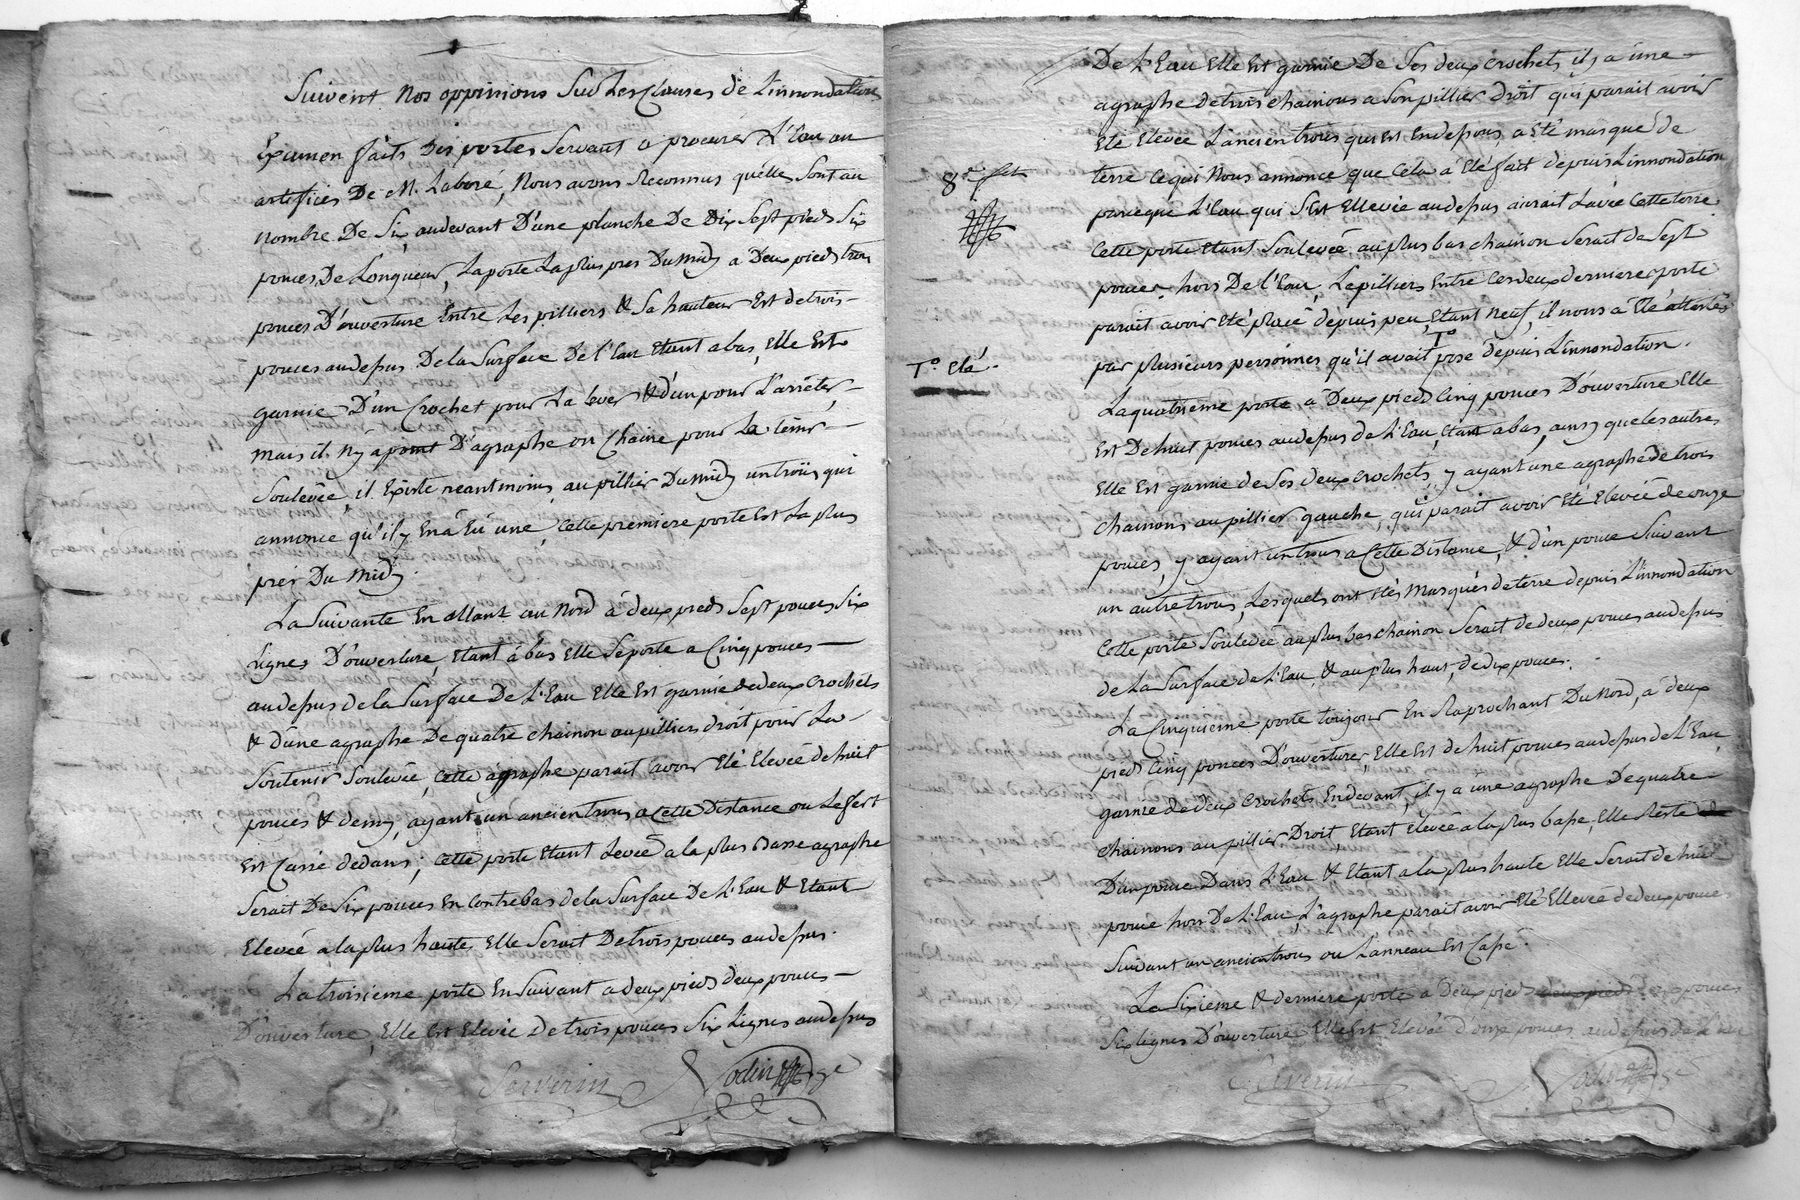 Suivent Nos oppinions Sur Les Causes de L'innondation
Examen faits Des portes Servant a procurer L'Eau au
artifices De M. Laboré, Nous avons Reconnus quélles Sont au
nombre De Six, audevant D'une planche De Dix Sept pieds Six
pouces De Longueur, La porte La plus pres Du midy a Deux pieds trois
pouces D'ouverture Entre Les pilliers & Sa hauteur Est de trois
pouces audessus De la Surface De l'Eau Etant a bas, Elle Est
garnie D'un Crochet pour La lever & d'un pour L'arrêter,
mais il n'y a point D'agraphe ou Chaine pour La tenir
Soulevée, il Existe neantmoins au pillier Du midy un troüs qui
annonce qu'il y En a Eû une, Cette premiere porte Est La plus
prés Du Midy.
La Suivante En allant au Nord à deux pieds Sept pouces Six
Lignes D'ouverture, Etant á bas Elle Se porte a Cinq pouces
audessus de la Surface De L'Eau Elle Est garnie de deux Crochets
& d'une agraphe De quatre chainon au pilliers droit pour La
Soutenir Soulevée, Cette agraphe parait avoir Eté Elevée de huit
pouces & demy, ayant un ancien trous a Cette Distance ou Le fert
Est Cassé dedans; Cette porte Etant Levée a la plus Basse agraphe
Serait De Six pouces En Contrebas de la Surface De L'Eau & Etant
Elevée a la plus haute, Elle Serait De trois pouces audessus.
La troisieme porte En Suivant a deux pieds deux pouces
D'ouverture, Elle Est Elevée De trois pouces Six Lignes audessus
Severin
De L'Eau Elle Est garnie De Ses deux Crochets, il y a une
agraphe De trois chainons a Son pillier Droit qui parait avoir
Eté Elevée L'ancien trous qui Est En dessous, a Eté masqué de
8e
terre Ce qui Nous annonce que Cela á Eté fait depuis L'innondation
parceque L'Eau qui S'Est Ellevée audessus aurait Lavée Cette terre
Cette porte Etant Soulevée au plus bas chainon Serait de Sept
pouces hors De l'Eau, Le pilliers Entre Ces deux dernieres porte
parait avoir Eté placé depuis peu, Etant Neuf, il nous à Eté attestés
To
To Eté.
par plusieurs personnes qu'il avait posé depuis L'innondation.
La quatrieme porte à Deux pieds Cinq pouces D'ouverture Elle
Est De huit pouces audessus de L'Eau, Etant a bas, ainsy que les autres
Elle Est garnie de Ses deux Crochets, y ayant une agraphe de trois
chainons au pillier gauche, qui parait avoir Eté Elevée de onze
pouces, y ayant un trous a Cette Distance, & d'un pouce Suivant
un autre trous, Lesquels ont Etés Masqués de terre depuis L'innondation
Cette porte Soulevée au plus bas chainon Serait de deux pouces audessus
de La Surface de L'Eau & au plus haut, de dix pouces.
La Cinquieme porte toujour En Raprochant Du Nord, a deux
pieds Cinq pouces D'ouverture, Elle Est de huit pouces audessus de l'Eau,
garnie de deux Crochets Endevant, il y a une agraphe De quatre
chainons au pillier Droit, Etant Elevée a la plus basse, Elle Reste
D'un pouce Dans L'Eau & Etant a la plus haute Elle Serait de huit
pouce hors De L'Eau, L'agraphe parait avoir Eté Ellevée de deux pouces
Suivant un ancien trous ou L'anneau Est Cassé.
La Sixieme & derniere porte a Deux pieds deux pieds Six pouces
Six Lignes D'ouverture Elle Est Elevée d'onze pouces audessus de L'Eau
Severin